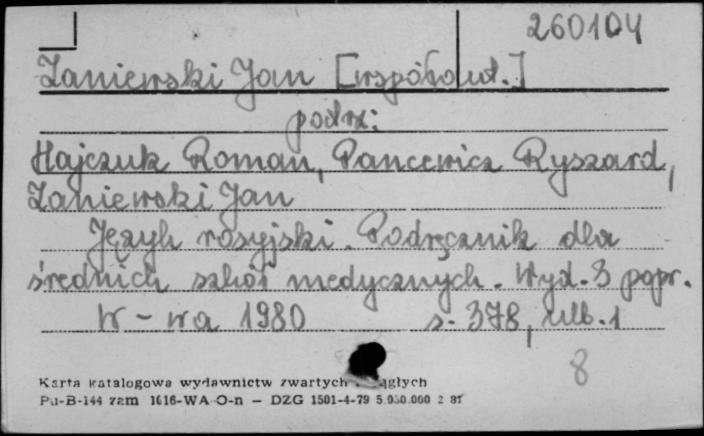 260104
Zaniewski Jan [współaut.]
podrz:
Hajczuk Roman, Pancewicz Ryszard,
Zaniewski Jan
Język rosyjski. Podręcznik dla
średnich szkół medycznych. Wyd. 3 popr.
W-wa 1980 s. 378, nlb. 1
8
Karta katalogowa wydawnictw zwartych
Pu-B-144 zam 1616-WA-O-n — DZG 1501-4-79 5.000.000 2 81